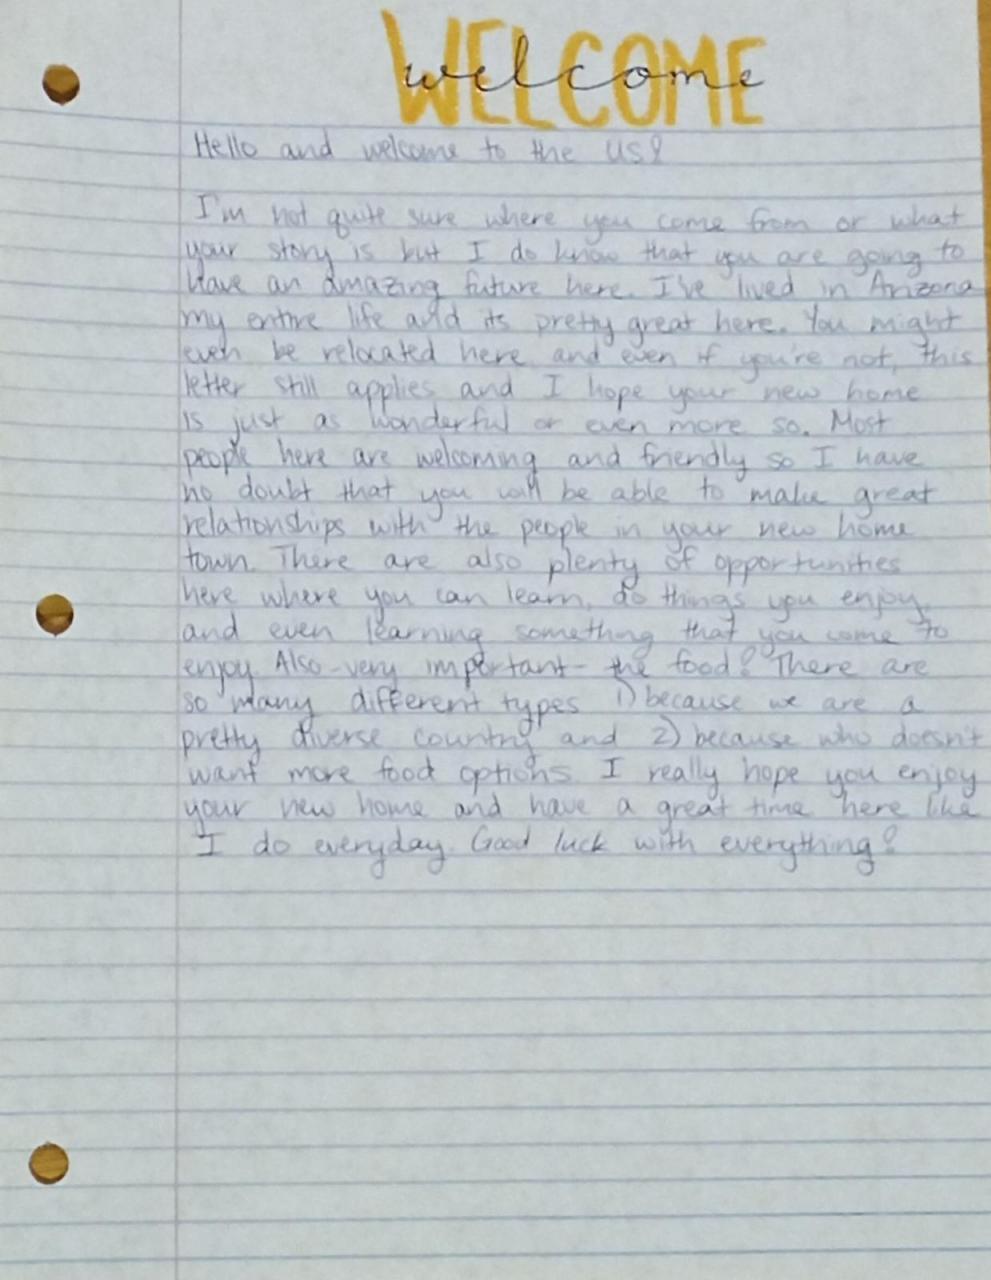 WELCOME
welcome
Hello and welcome to the US!
I'm not quite sure where you come from or what
your story is but I do know that you are going to
have an amazing future here. I've lived in Arizona
my entire life and its pretty great here. You might
even be relocated here and even if you're not, this
letter still applies and I hope your new home
is just as wonderful or even more so. Most
people here are welcoming and friendly so I have
no doubt that you will be able to make great
relationships with the people in your new home
town. There are also plenty of opportunities
here where you can learn, do things you enjoy,
and even learning something that you come to
enjoy. Also -very important- the food! There are
so many different types 1) because we are a
pretty diverse country and 2) because who doesn't
want more food options. I really hope you enjoy
your new home and have a great time here like
I do everyday. Good luck with everything!